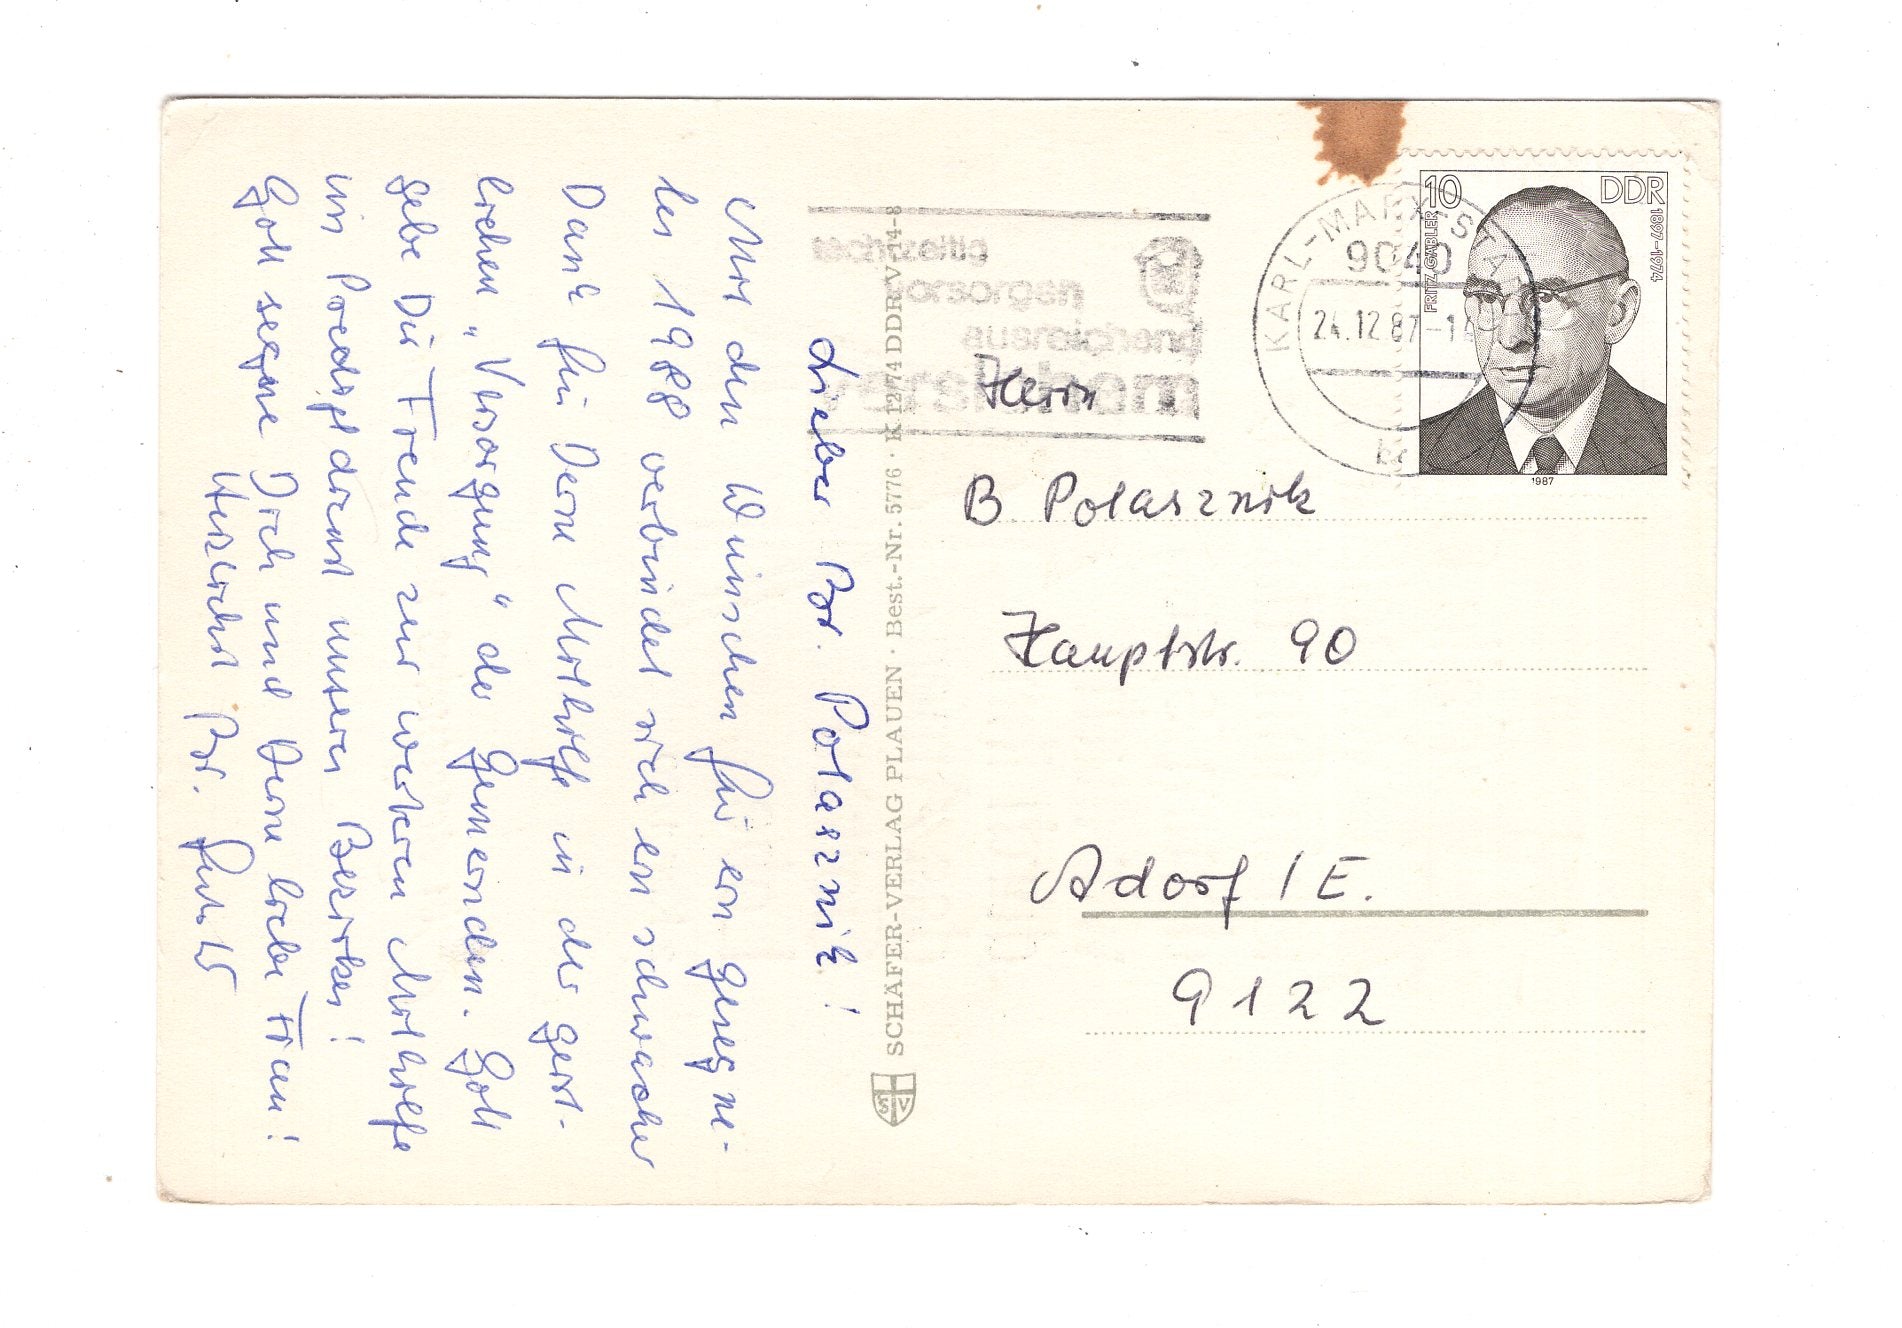 Lieber Br. Polasznik!
Mit den Wünschen für ein gesegne-
tes 1988 verbindet sich ein schwacher
Dank für Deine Mithilfe in der geist-
lichen „Versorgung“ der Gemeinden. Gott
gebe Dir Freude zur weiteren Mithilfe
im Predigtdienst unseres Bezirkes!
Gott segne Dich und Deine liebe Frau!
Herzlichst Br.
SCHÄFER-VERLAG PLAUEN · Best.-Nr. 5776 · K 12/74 DDR V-14-8
SV
rechtzeitig
vorsorgen
ausreichend
versichern
KARL-MARX-STADT
9040
24.12.87-1
10
DDR
FRITZ GÄBLER
1897-1974
1987
Herrn
B Polasznik
Hauptstr. 90
Adorf / E.
9122